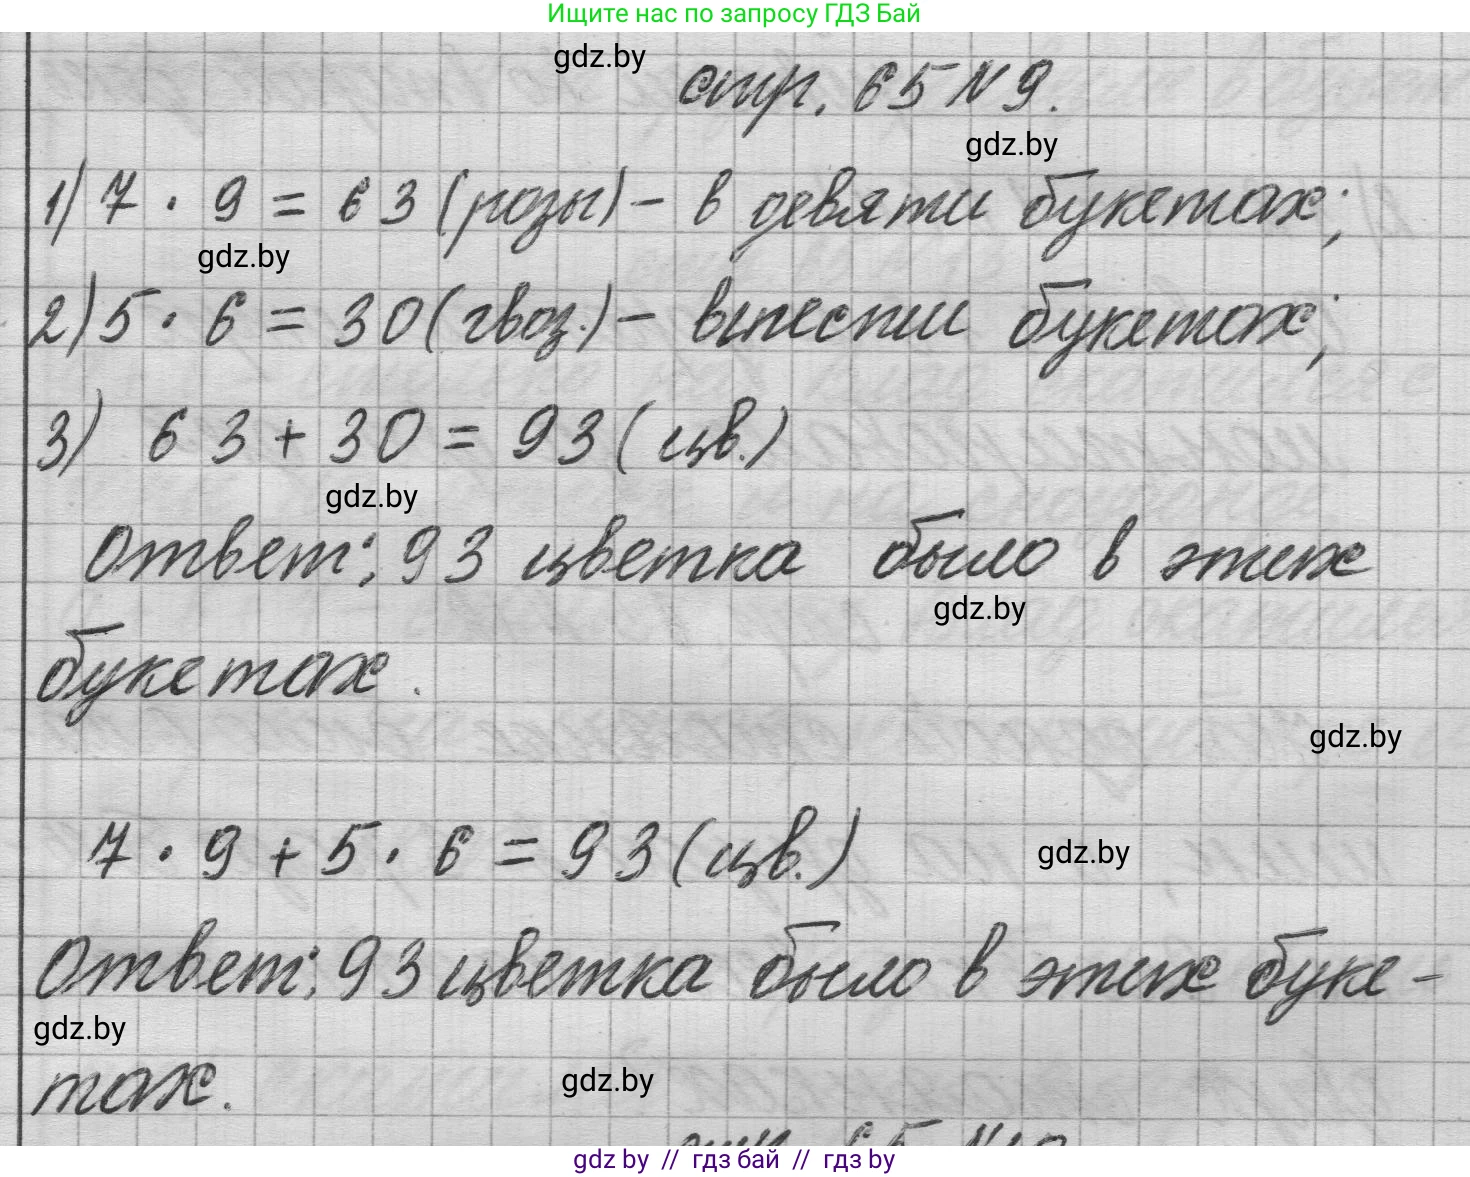 Ищите нас по запросу ГДЗ Бай
gdz.by
стр. 65 N 9.
gdz.by
1) 7 · 9 = 63 (розы) – в девяти букетах;
gdz.by
2) 5 · 6 = 30 (гвоз.) – в шести букетах;
3) 63 + 30 = 93 (цв.)
gdz.by
Ответ: 93 цветка было в этих
gdz.by
букетах.
gdz.by
7 · 9 + 5 · 6 = 93 (цв.)
gdz.by
Ответ: 93 цветка было в этих буке-
gdz.by
тах.
gdz.by
gdz by // гдз бай // гдз by